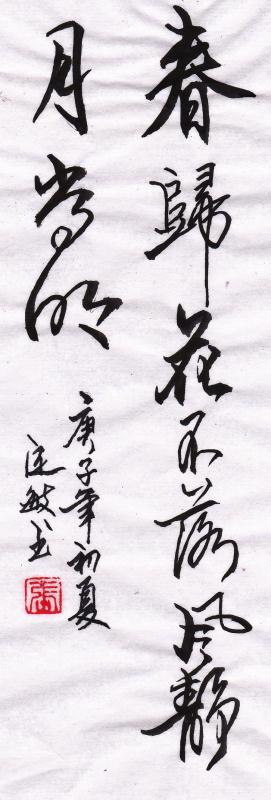 春歸花不落風靜
月常明
庚子年初夏
敏